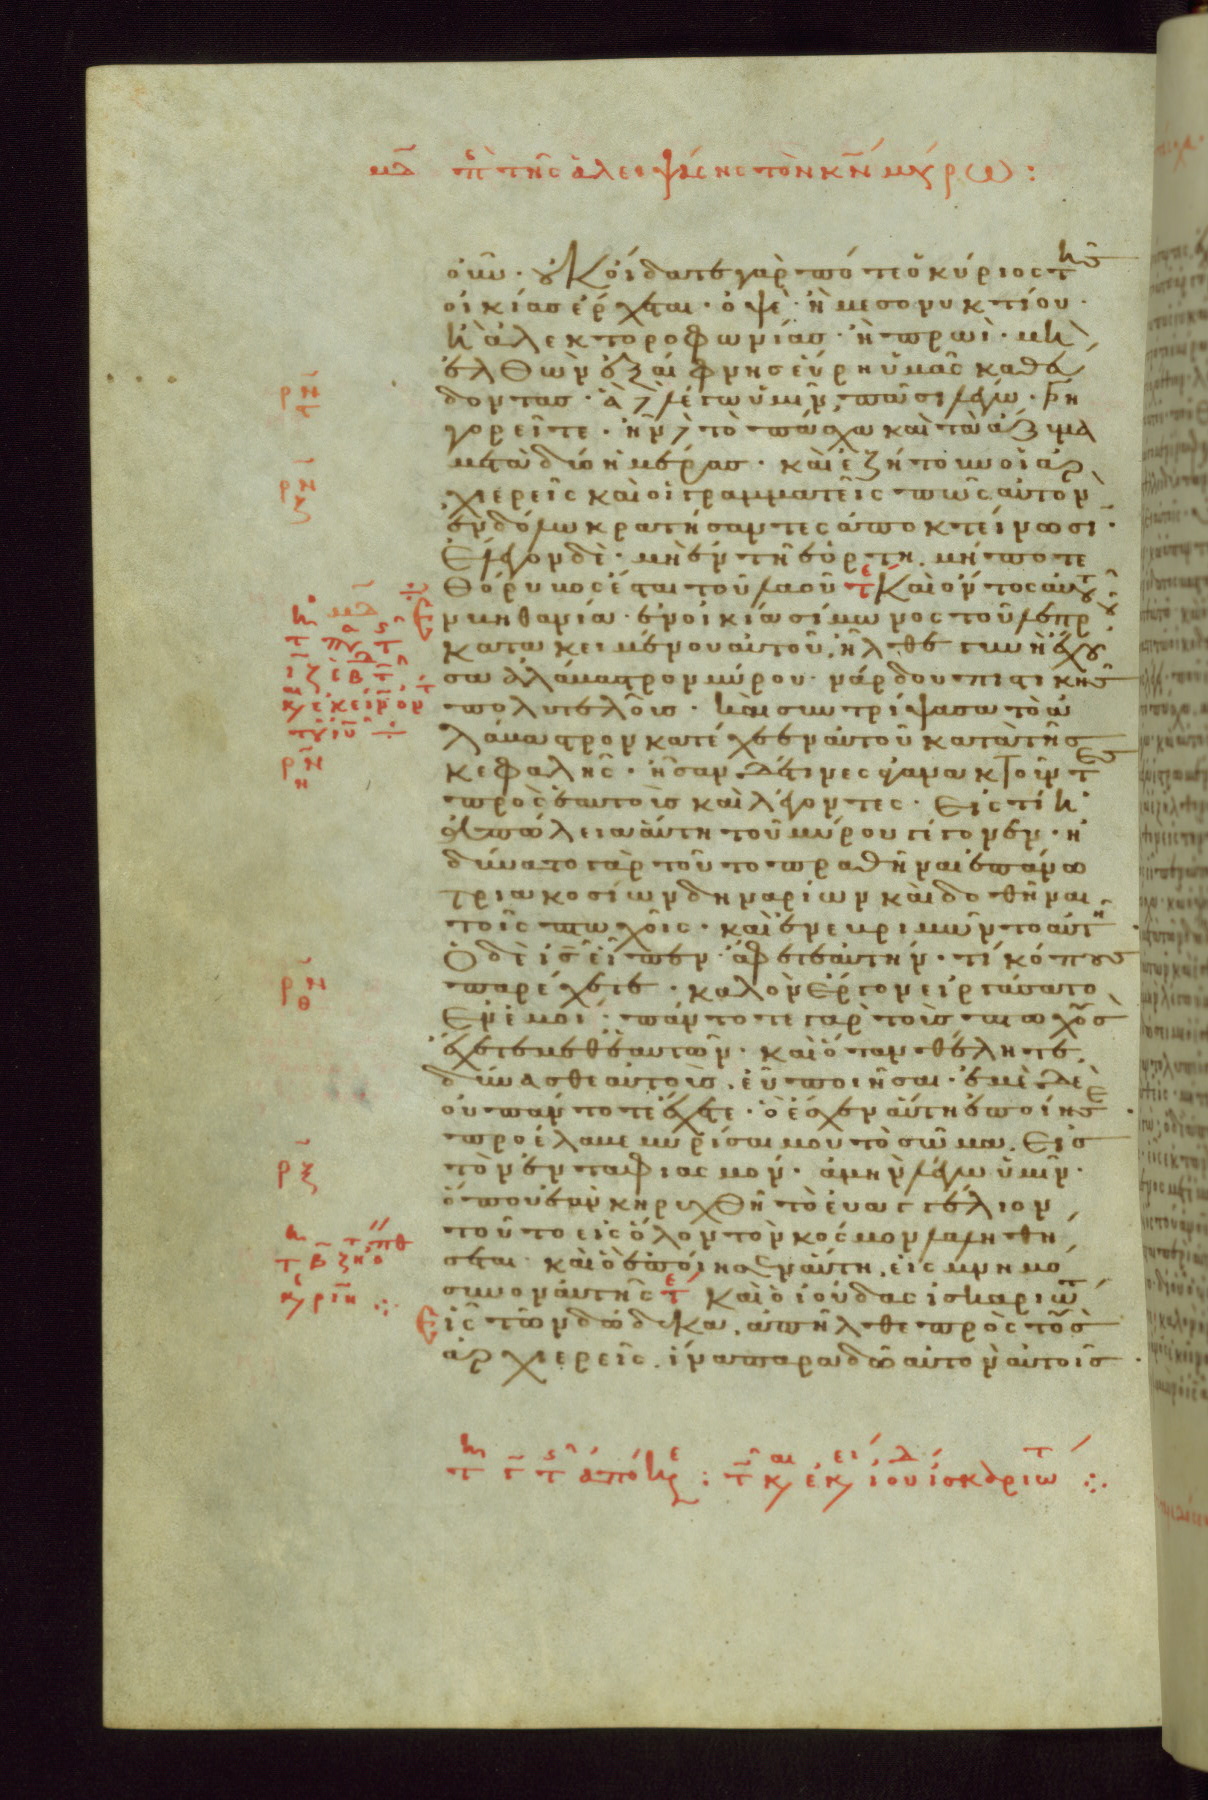 μδ π τῆς ἀλειψάσης τὸν κν μύρω :
οὖν · οὐκ οἴδατε γὰρ πότε ὁ κύριος τῆς
οἰκίας ἔρχεται · ὀψὲ · ἢ μεσονυκτίου ·
ἢ ἀλεκτοροφωνίας · ἢ πρωὶ · μὴ
ἐλθὼν ἐξαίφνης εὕρη ὑμᾶς καθεύ
δοντας · ἃ δὲ λέγω ὑμῖν πᾶσι λέγω · γρη
γορεῖτε · ἦν δὲ τὸ πάσχα καὶ τὰ ἄζυμα
μετὰ δύο ἡμέρας · καὶ ἐζήτουν οἱ ἀρ
χιερεῖς καὶ οἱ γραμματεῖς πῶς αὐτὸν
ἐν δόλω κρατήσαντες ἀποκτείνωσι ·
Ἔλεγον δὲ · μὴ ἐν τῆ ἑορτῆ · μήποτε
θόρυβος ἔσται τοῦ λαοῦ τε Καὶ ὄντος αὐτοῦ
ἐν βηθανία · ἐν οἰκία σίμωνος τοῦ λεπροῦ
κατακειμένου αὐτοῦ · ἦλθε γυνὴ ἔχου
σα ἀλάβαστρον μύρου · νάρδου πιστικῆς
πολυτελοῦς · καὶ συντρίψασα τὸ ἀ
λάβαστρον κατέχεεν αὐτοῦ κατὰ τῆς
κεφαλῆς · ἦσαν δέ τινες ἀγανακτοῦντες
πρὸς ἑαυτοὺς καὶ λέγοντες · Εἰς τί ἡ
ἀπώλεια αὕτη τοῦ μύρου γέγονεν · ἠ
δύνατο γὰρ τοῦτο πραθῆναι ἐπάνω
τριακοσίων δηναρίων καὶ δοθῆναι
τοῖς πτωχοῖς · καὶ ἐνεβριμῶντο αὐτῆ ·
Ὁ δὲ ις εἶπεν · ἄφετε αὐτήν · τί κόπους
παρέχετε · καλὸν ἔργον εἰργάσατο
Ἐν ἐμοί · πάντοτε γὰρ τοὺς πτωχοὺς
ἔχετε μεθ ἑαυτῶν · καὶ ὅταν θέλητε
δύνασθε αὐτοὺς εὖ ποιῆσαι · ἐμὲ δὲ
οὐ πάντοτε ἔχετε · ὃ ἔσχεν αὕτη ἐποίησε ·
προέλαβε μυρίσαι μου τὸ σῶμα Εἰς
τὸν ἐνταφιασμόν · ἀμὴν λέγω ὑμῖν ·
ὅπου ἐὰν κηρυχθῆ τὸ εὐαγγέλιον
τοῦτο εἰς ὅλον τὸν κόσμον λαληθή
σεται καὶ ὃ ἐποίησεν αὕτη εἰς μνημό
συνον αὐτῆς τε Καὶ ὁ ἰούδας ἰσκαριώτης
Εἷς τῶν δώδεκα ἀπῆλθε πρὸς τοὺς
ἀρχιερεῖς ἵνα παραδῶ αὐτὸν αὐτοῖς ·
ρν
ς
ρν
ζ
ρν
η
ρν
θ
ρξ